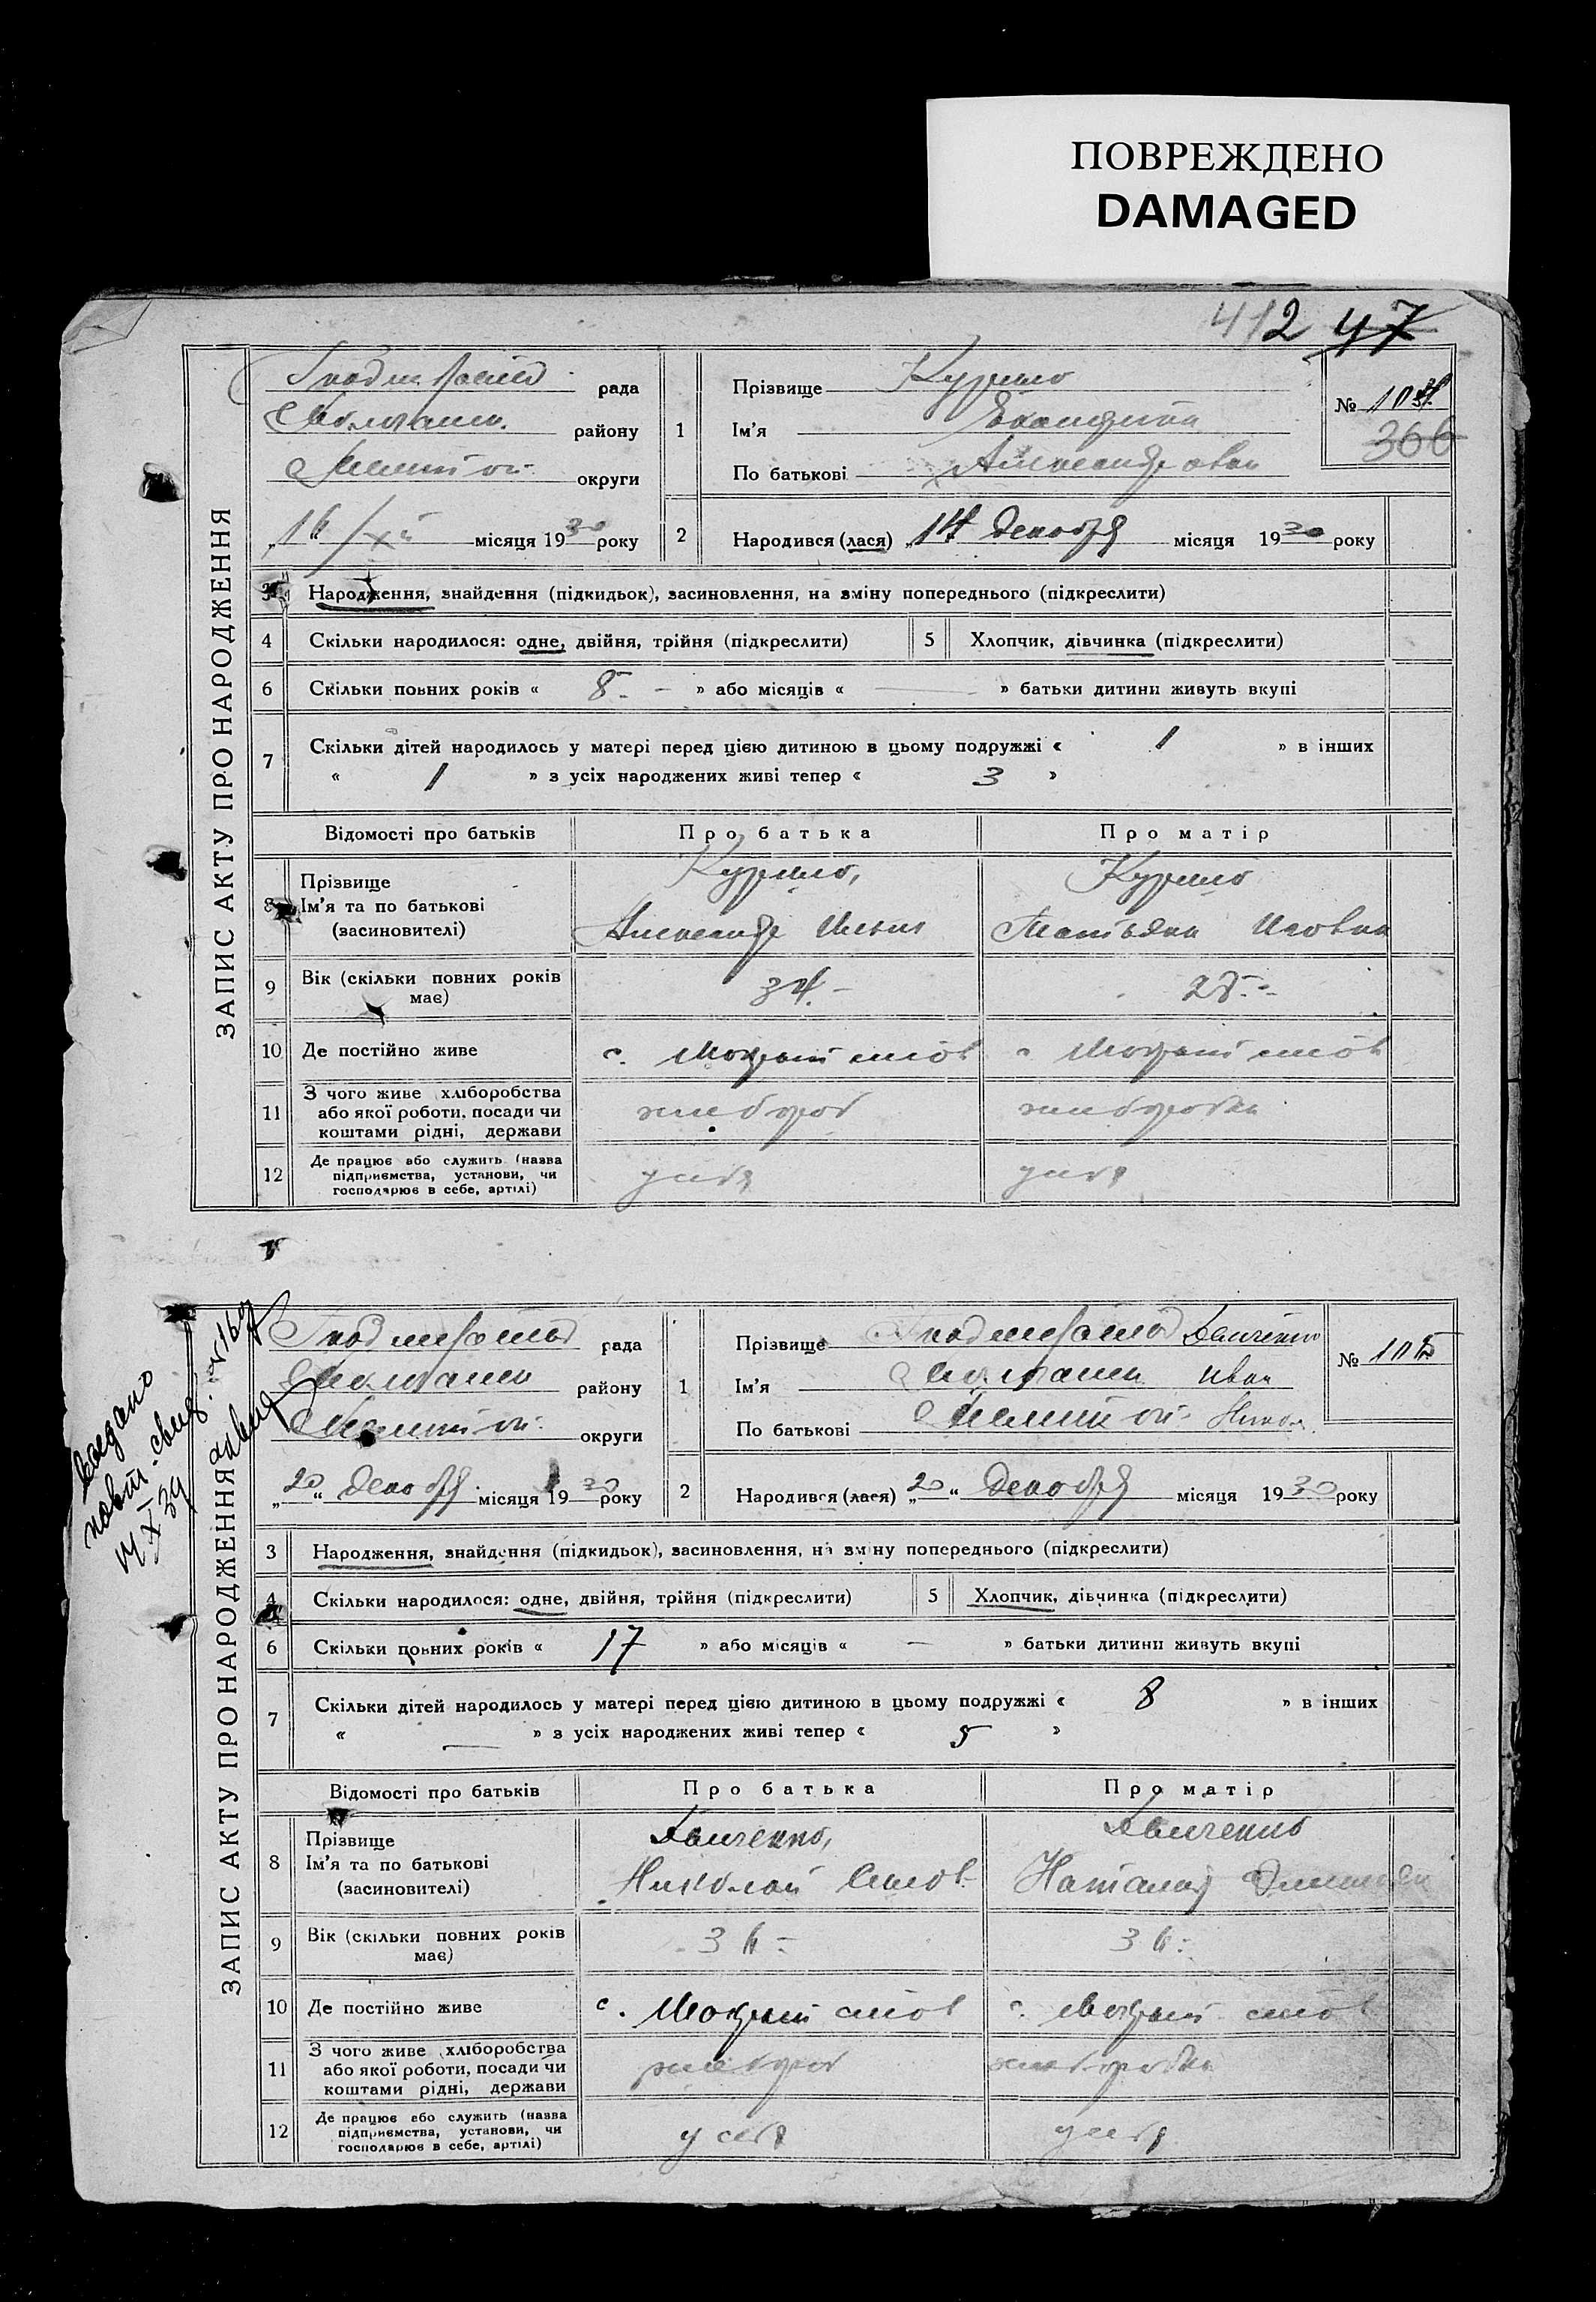 ПОВРЕЖДЕНО
DAMAGED
412 47
ЗАПИС АКТУ ПРО НАРОДЖЕННЯ
рада
району
округи
„16/XII місяця 1930 року
1
Прізвище Курило
Ім'я Екатерина
По батькові Александровна
№ 104
366
2
Народився (лася) „14 декабря місяця 1930 року
3 Народження, знайдення (підкидьок), засиновлення, на зміну попереднього (підкреслити)
4 Скільки народилося: одне, двійня, трійня (підкреслити)
5 Хлопчик, дівчинка (підкреслити)
6 Скільки повних років « 8 - » або місяців « — » батьки дитини живуть вкупі
7 Скільки дітей народилось у матері перед цією дитиною в цьому подружжі « 1 » в інших
« 1 » з усіх народжених живі тепер « 3 »
Відомості про батьків Про батька Про матір
8 Прізвище
Ім'я та по батькові
(засиновителі)
Курило, Курило
Александр Татьяна
9 Вік (скільки повних років
має)
34.- 28.-
10 Де постійно живе с. с.
11 З чого живе хліборобства
або якої роботи, посади чи
коштами рідні, держави
хлебороб хлеборобка
12 Де працює або служить (назва
підприємства, установи, чи
господарює в себе, артілі)
у себя у себя
видано
повт. свид.
14 X 39
ЗАПИС АКТУ ПРО НАРОДЖЕННЯ
рада
району
округи
„20“ декабря місяця 1930 року
1
Прізвище
Ім'я Иван
По батькові Никол
№ 105
2
Народився (лася) „20“ декабря місяця 1930 року
3 Народження, знайдення (підкидьок), засиновлення, на зміну попереднього (підкреслити)
4 Скільки народилося: одне, двійня, трійня (підкреслити)
5 Хлопчик, дівчинка (підкреслити)
6 Скільки повних років « 17 » або місяців « — » батьки дитини живуть вкупі
7 Скільки дітей народилось у матері перед цією дитиною в цьому подружжі « 8 » в інших
« — » з усіх народжених живі тепер « 5 »
Відомості про батьків Про батька Про матір
8 Прізвище
Ім'я та по батькові
(засиновителі)
Николай Наталия
9 Вік (скільки повних років
має)
36- 36-
10 Де постійно живе с. с.
11 З чого живе хліборобства
або якої роботи, посади чи
коштами рідні, держави
хлебороб хлеборобка
12 Де працює або служить (назва
підприємства, установи, чи
господарює в себе, артілі)
у себя у себя